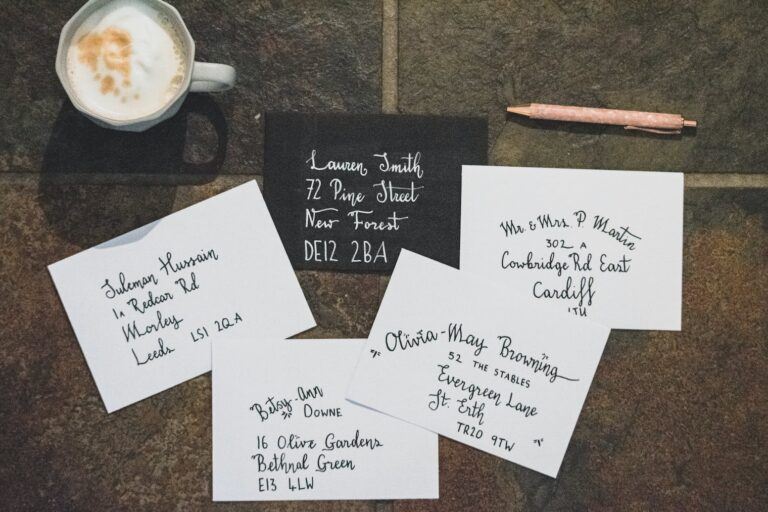 Lauren Smith
72 Pine Street
New Forest
DE12 2BA
Mr. & Mrs. P. Martin
302 A
Cowbridge Rd East
Cardiff
1TU
Suleman Hussain
1A Redcar Rd
Morley
Leeds LS1 2QA
Olivia-May Browning
52 THE STABLES
Evergreen Lane
St. Erth
TR20 9TW
Betsy-Ann
DOWNE
16 Olive Gardens
Bethnal Green
E13 4LW